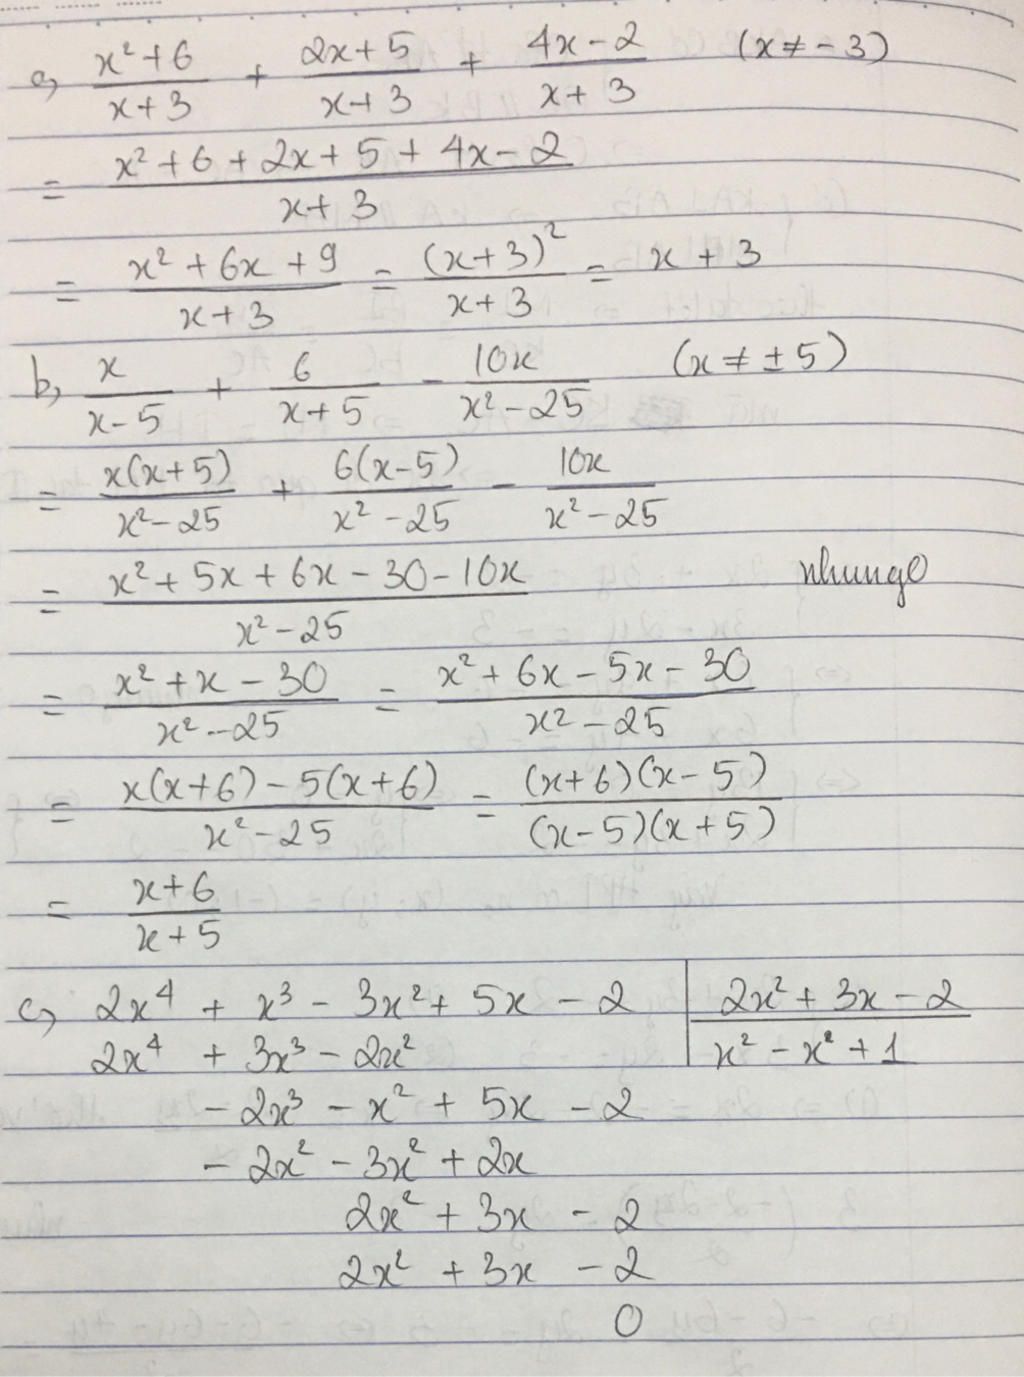 a, (x² + 6)/(x + 3) + (2x + 5)/(x + 3) + (4x - 2)/(x + 3) (x ≠ -3)
= (x² + 6 + 2x + 5 + 4x - 2)/(x + 3)
= (x² + 6x + 9)/(x + 3) = (x + 3)²/(x + 3) = x + 3
b, x/(x - 5) + 6/(x + 5) - 10x/(x² - 25) (x ≠ ± 5)
= x(x + 5)/(x² - 25) + 6(x - 5)/(x² - 25) - 10x/(x² - 25)
= (x² + 5x + 6x - 30 - 10x)/(x² - 25) nhungo
= (x² + x - 30)/(x² - 25) = (x² + 6x - 5x - 30)/(x² - 25)
= (x(x + 6) - 5(x + 6))/(x² - 25) = (x + 6)(x - 5)/(x - 5)(x + 5)
= (x + 6)/(x + 5)
c, 2x⁴ + x³ - 3x² + 5x - 2 | 2x² + 3x - 2
2x⁴ + 3x³ - 2x² | x² - x² + 1
- 2x³ - x² + 5x - 2
- 2x² - 3x² + 2x
2x² + 3x - 2
2x² + 3x - 2
0